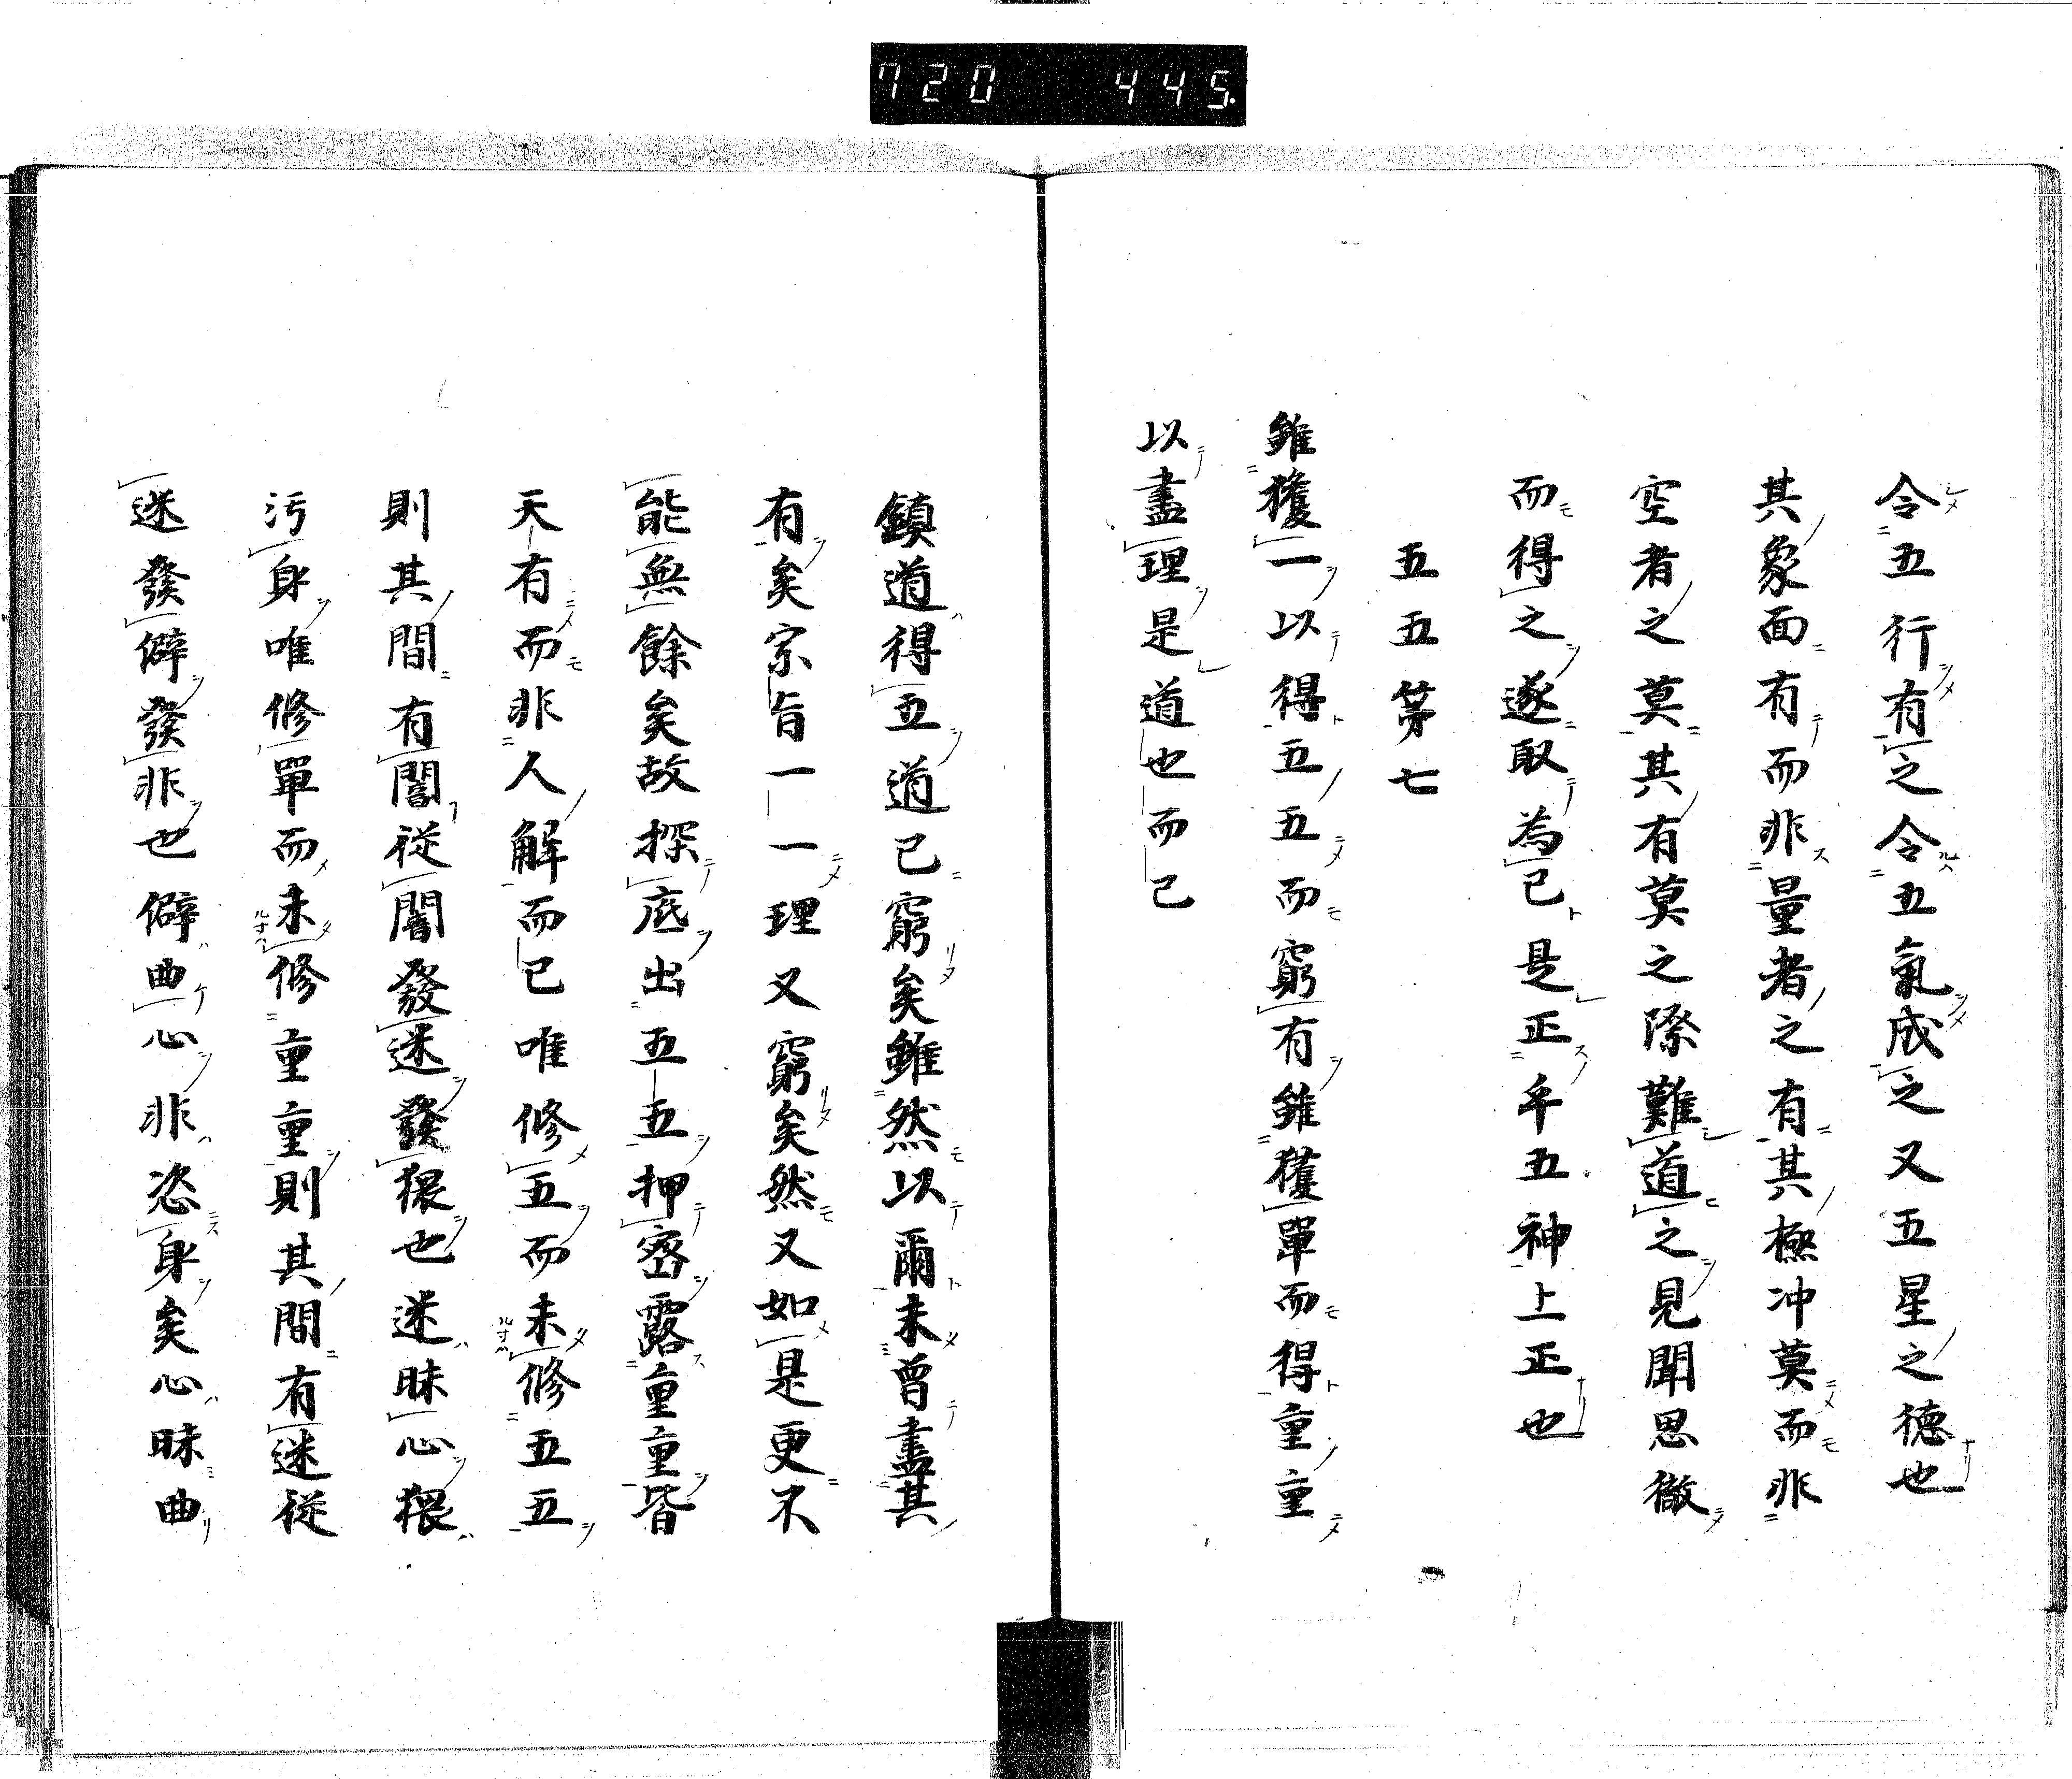 720 445.
令五行有之令五氣成之又五星之德也
其象面有而非量者之有其極冲莫而非
空者之莫其有莫之際難道之見聞思徹
而得之遂取為己是正乎五神上正也
五五第七
雖獲一以得五五而窮有雖獲單而得重重
以盡理是道也而已
鎮道得五道已窮矣雖然以爾未曾盡其
有矣宗旨一一理又窮矣然又如是更不
能無餘矣故探底出五五押密露重重皆
天有而非人解而已唯修五而未修五五
則其間有闇從闇發迷發猥也迷昧心猥
汚身唯修單而未修重重則其間有迷從
迷發僻發非也僻曲心非恣身矣心昧曲